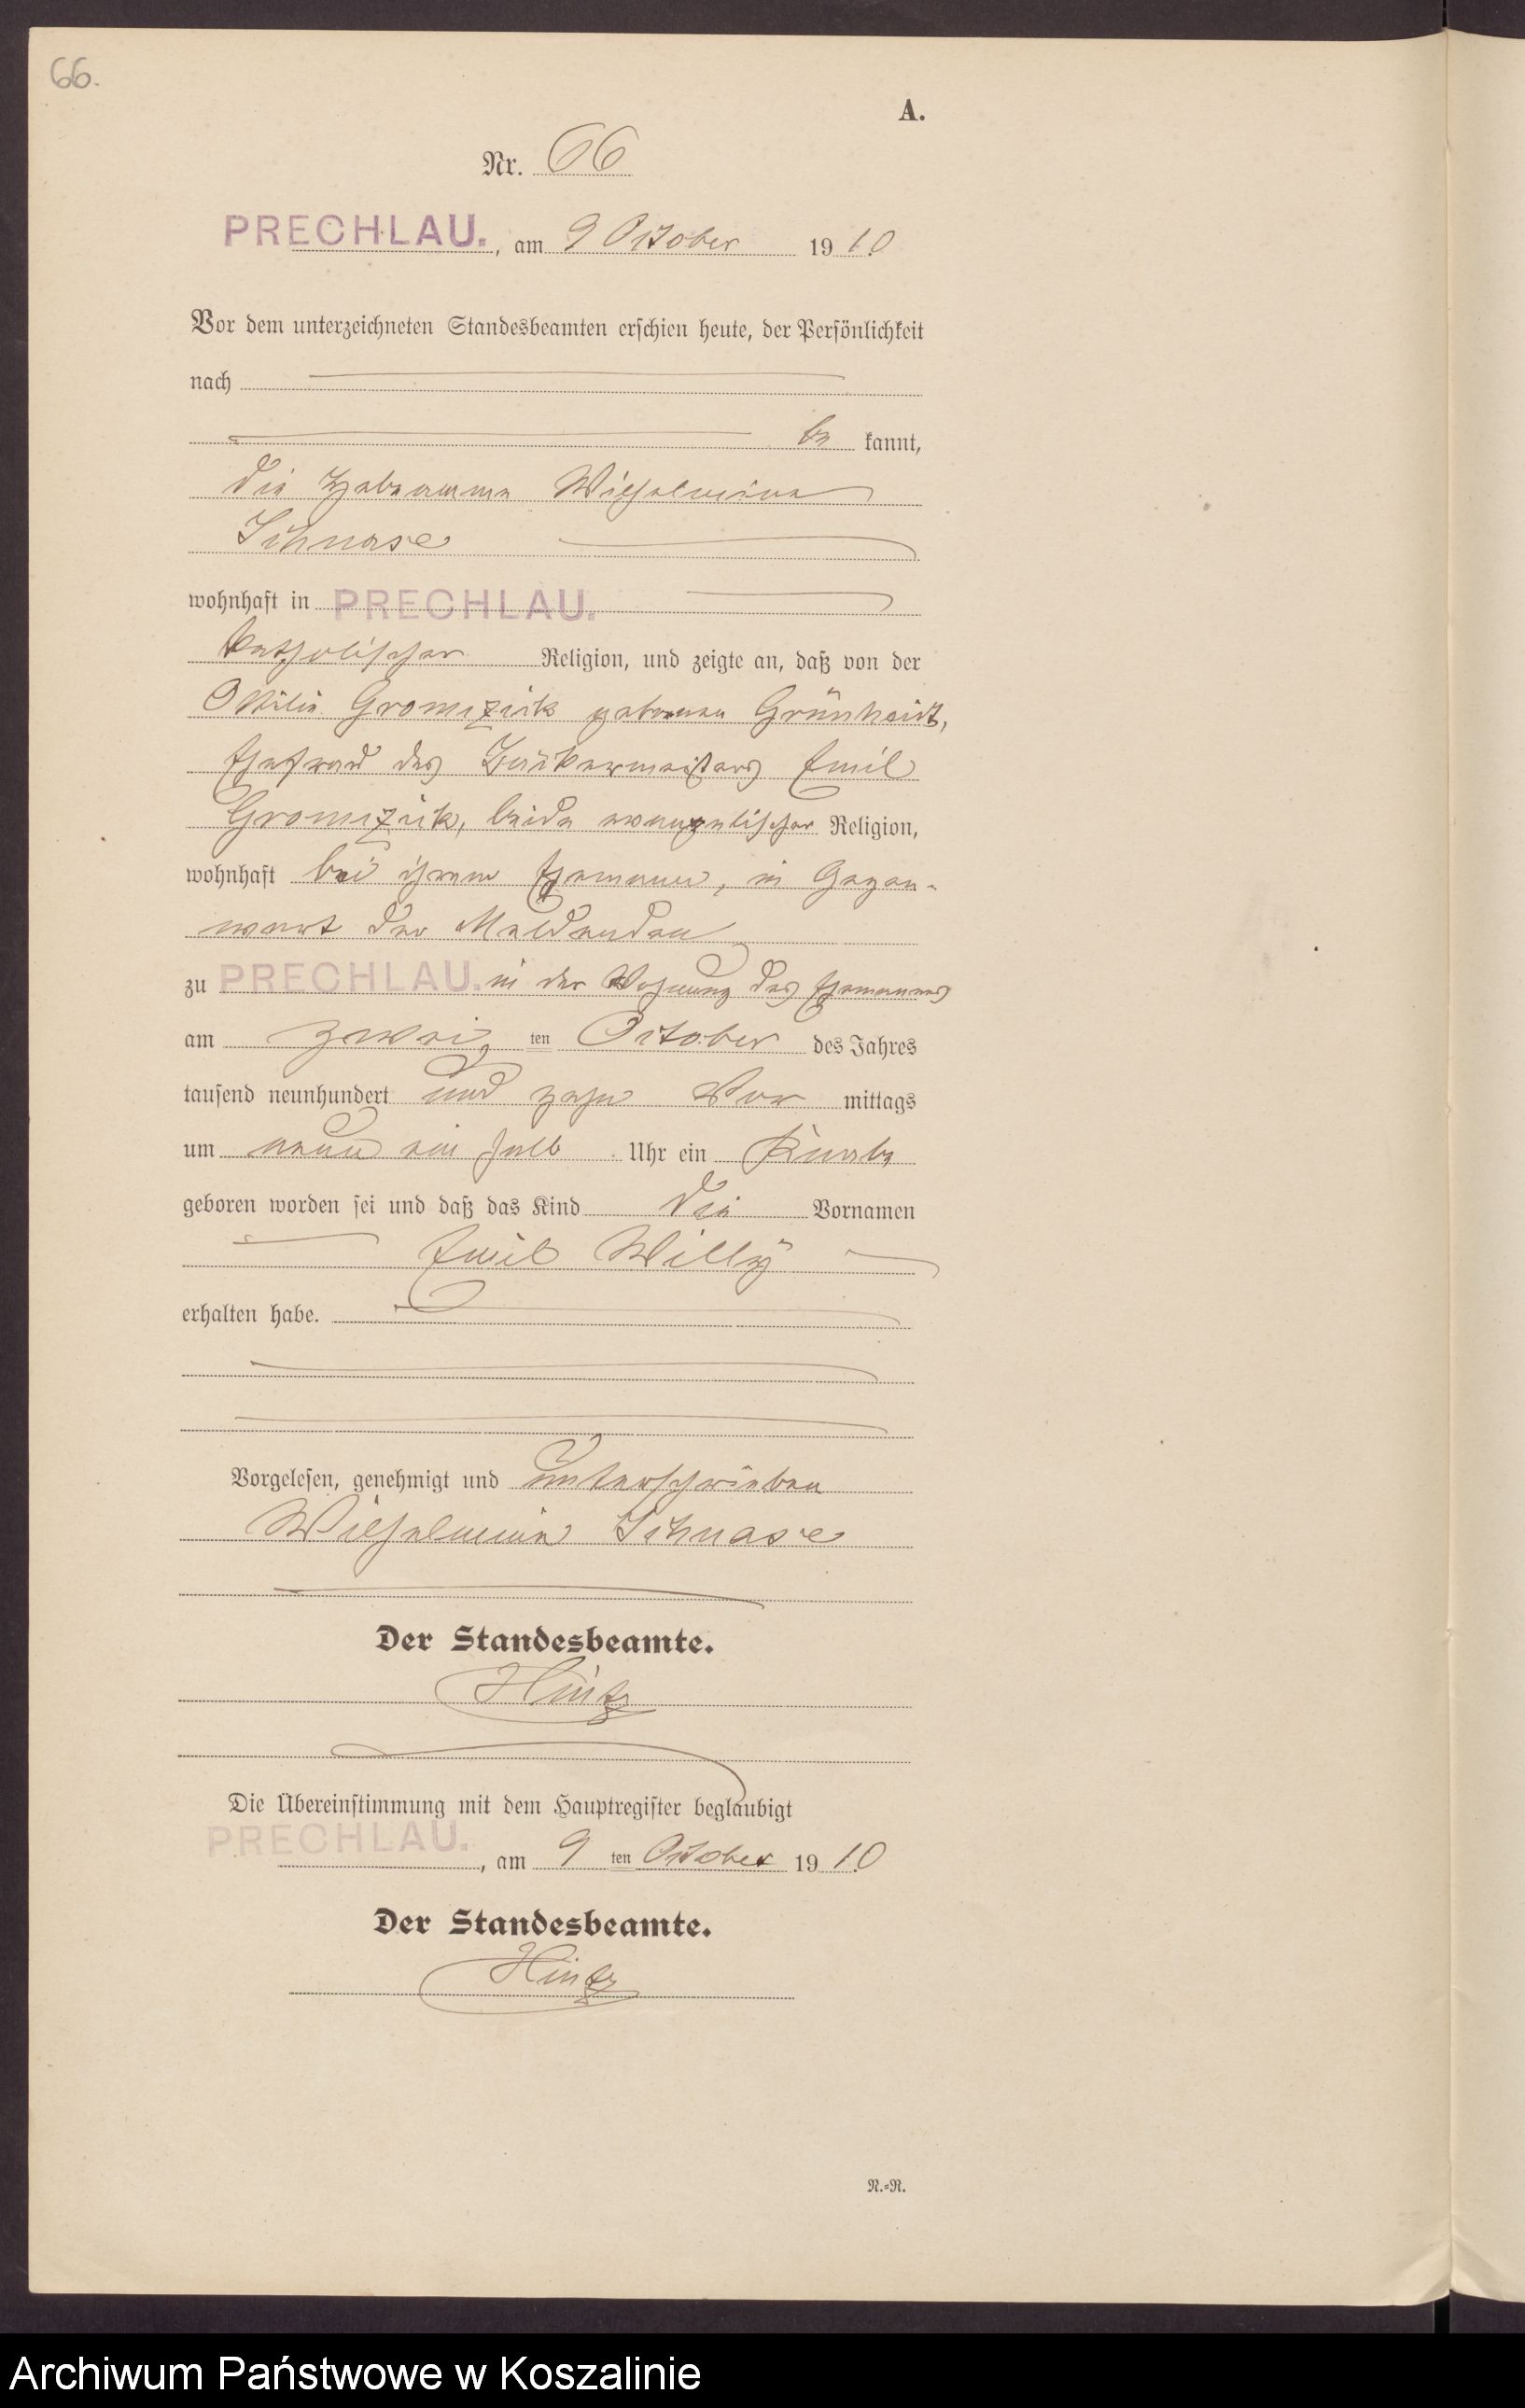 66.
A.
Nr. 66
PRECHLAU., am 9 October 1910
Vor dem unterzeichneten Standesbeamten erschien heute, der Persönlichkeit
nach
be kannt,
die Hebamme Wilhelmine
Schnase
wohnhaft in PRECHLAU.
katholischer Religion, und zeigte an, daß von der
Ottilie geborenen Grünheidt,
Ehefrau des Bäckermeisters Emil
beide evangelischer Religion,
wohnhaft bei ihrem Ehemann, in Gegen-
wart der Meldenden
zu PRECHLAU. in der Wohnung des Ehemannes
am zwei ten October des Jahres
tausend neunhundert und zehn Vor mittags
um neun ein halb Uhr ein Knabe
geboren worden sei und daß das Kind die Vornamen
Emil Willy
erhalten habe.
Vorgelesen, genehmigt und unterschrieben
Wilhelmine Schnase
Der Standesbeamte.
Hintz
Die Übereinstimmung mit dem Hauptregister beglaubigt
PRECHLAU., am 9 ten October 1910
Der Standesbeamte.
Hintz
N.=R.
Archiwum Państwowe w Koszalinie